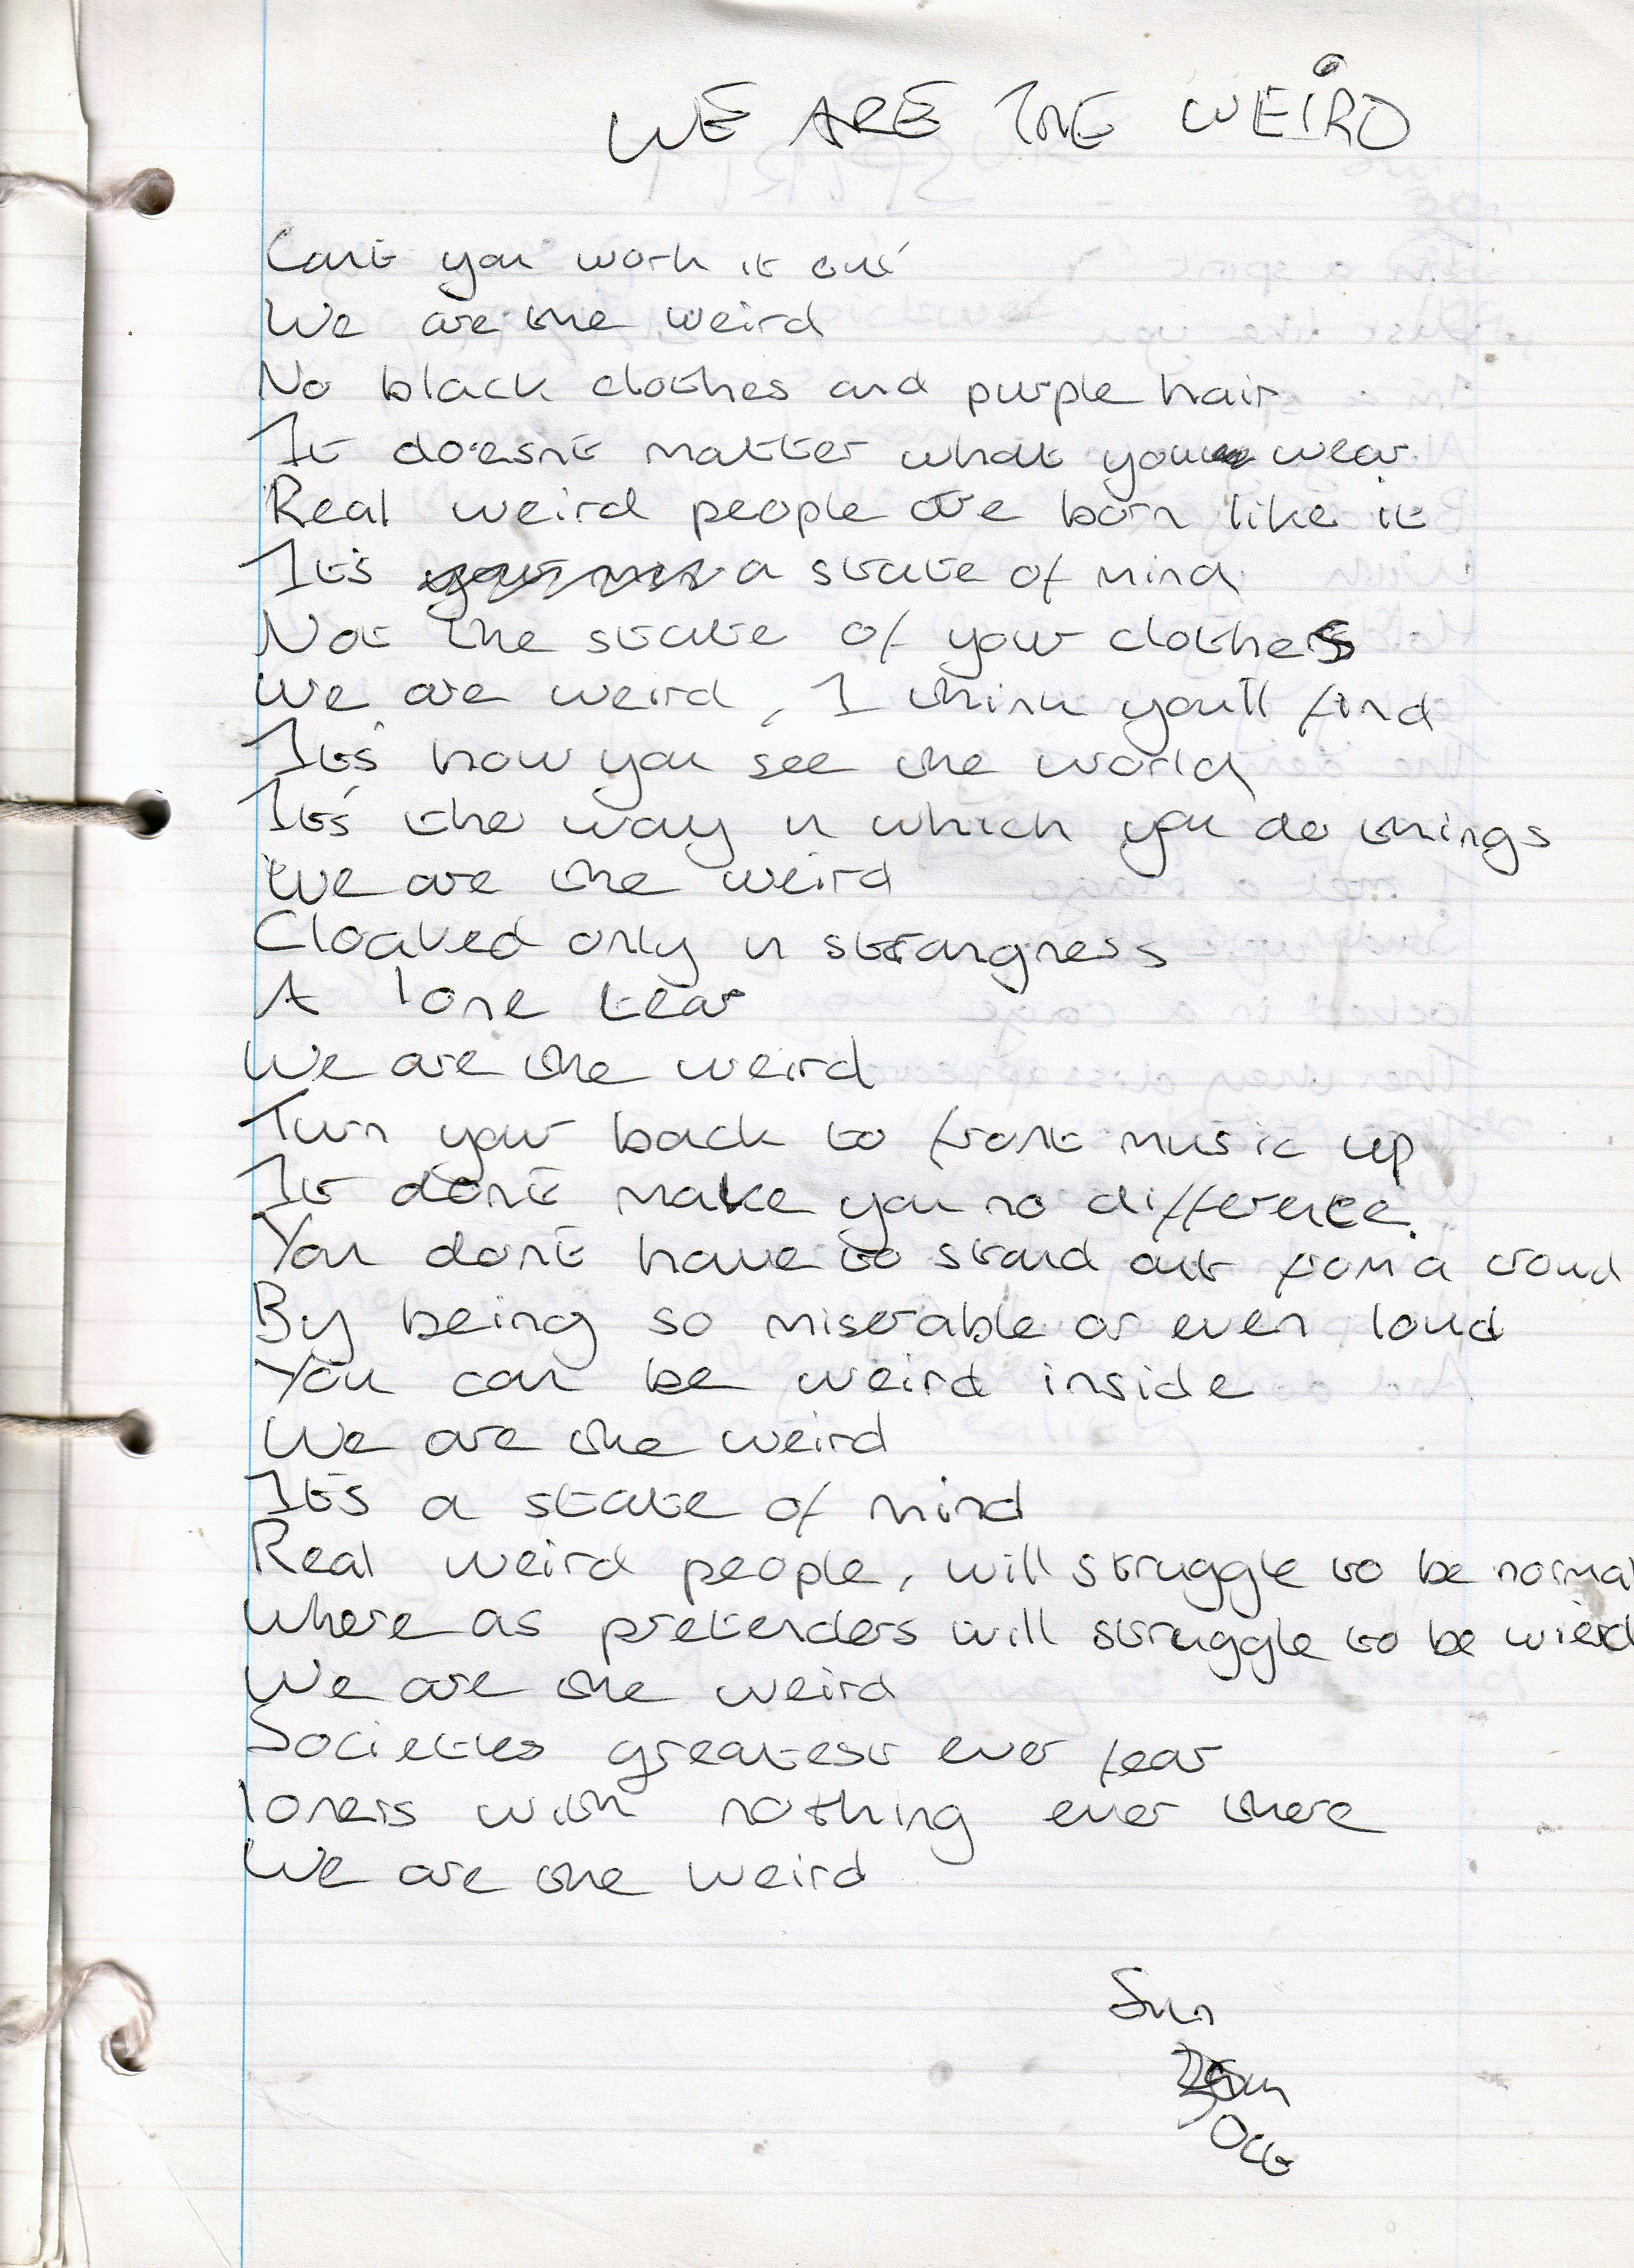 WE ARE THE WEIRD
Cant you work it out
We are the weird
No black clothes and purple hair
It doesn't matter what you wear
Real weird people are born like it
It's a state of mind
Not the state of your clothes
We are weird, I think you'll find
It's how you see the world
It's the way in which you do things
We are the weird
Cloaked only in strangness
A lone tear
We are the weird
Turn your back to front music up
It don't make you no difference.
You don't have to stand out from a croud
By being so miserable or even loud
You can be weird inside
We are the weird
It's a state of mind
Real weird people, will struggle to be normal
Where as pretenders will struggle to be wierd
We are the weird
Societies greatest ever fear
loners with nothing ever there
We are the weird
Sun
Oct